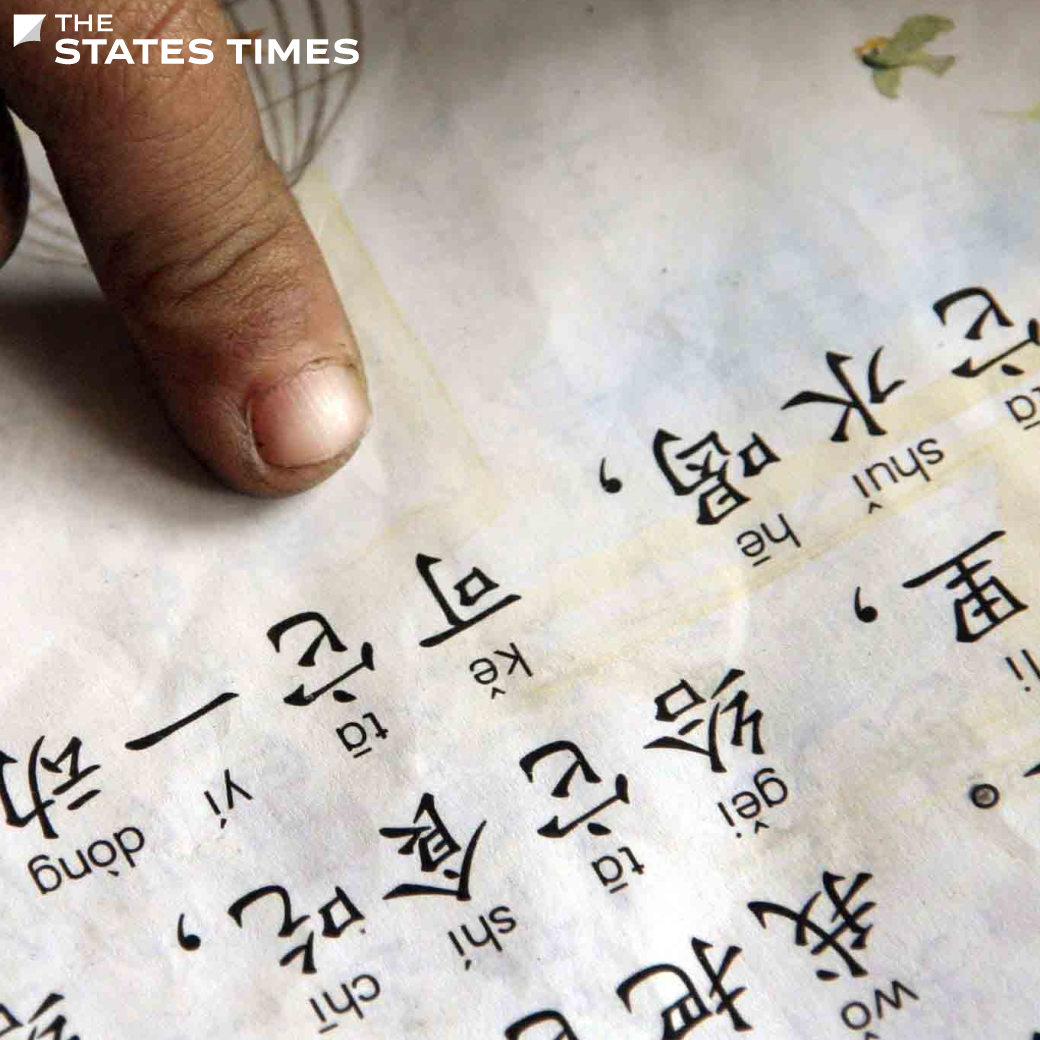 THE
STATES TIMES
wǒ
。我把
li gěi tā shí chī
里，给它食吃，
tā shuǐ hē kě tā yí dòng
它水喝，可它一动